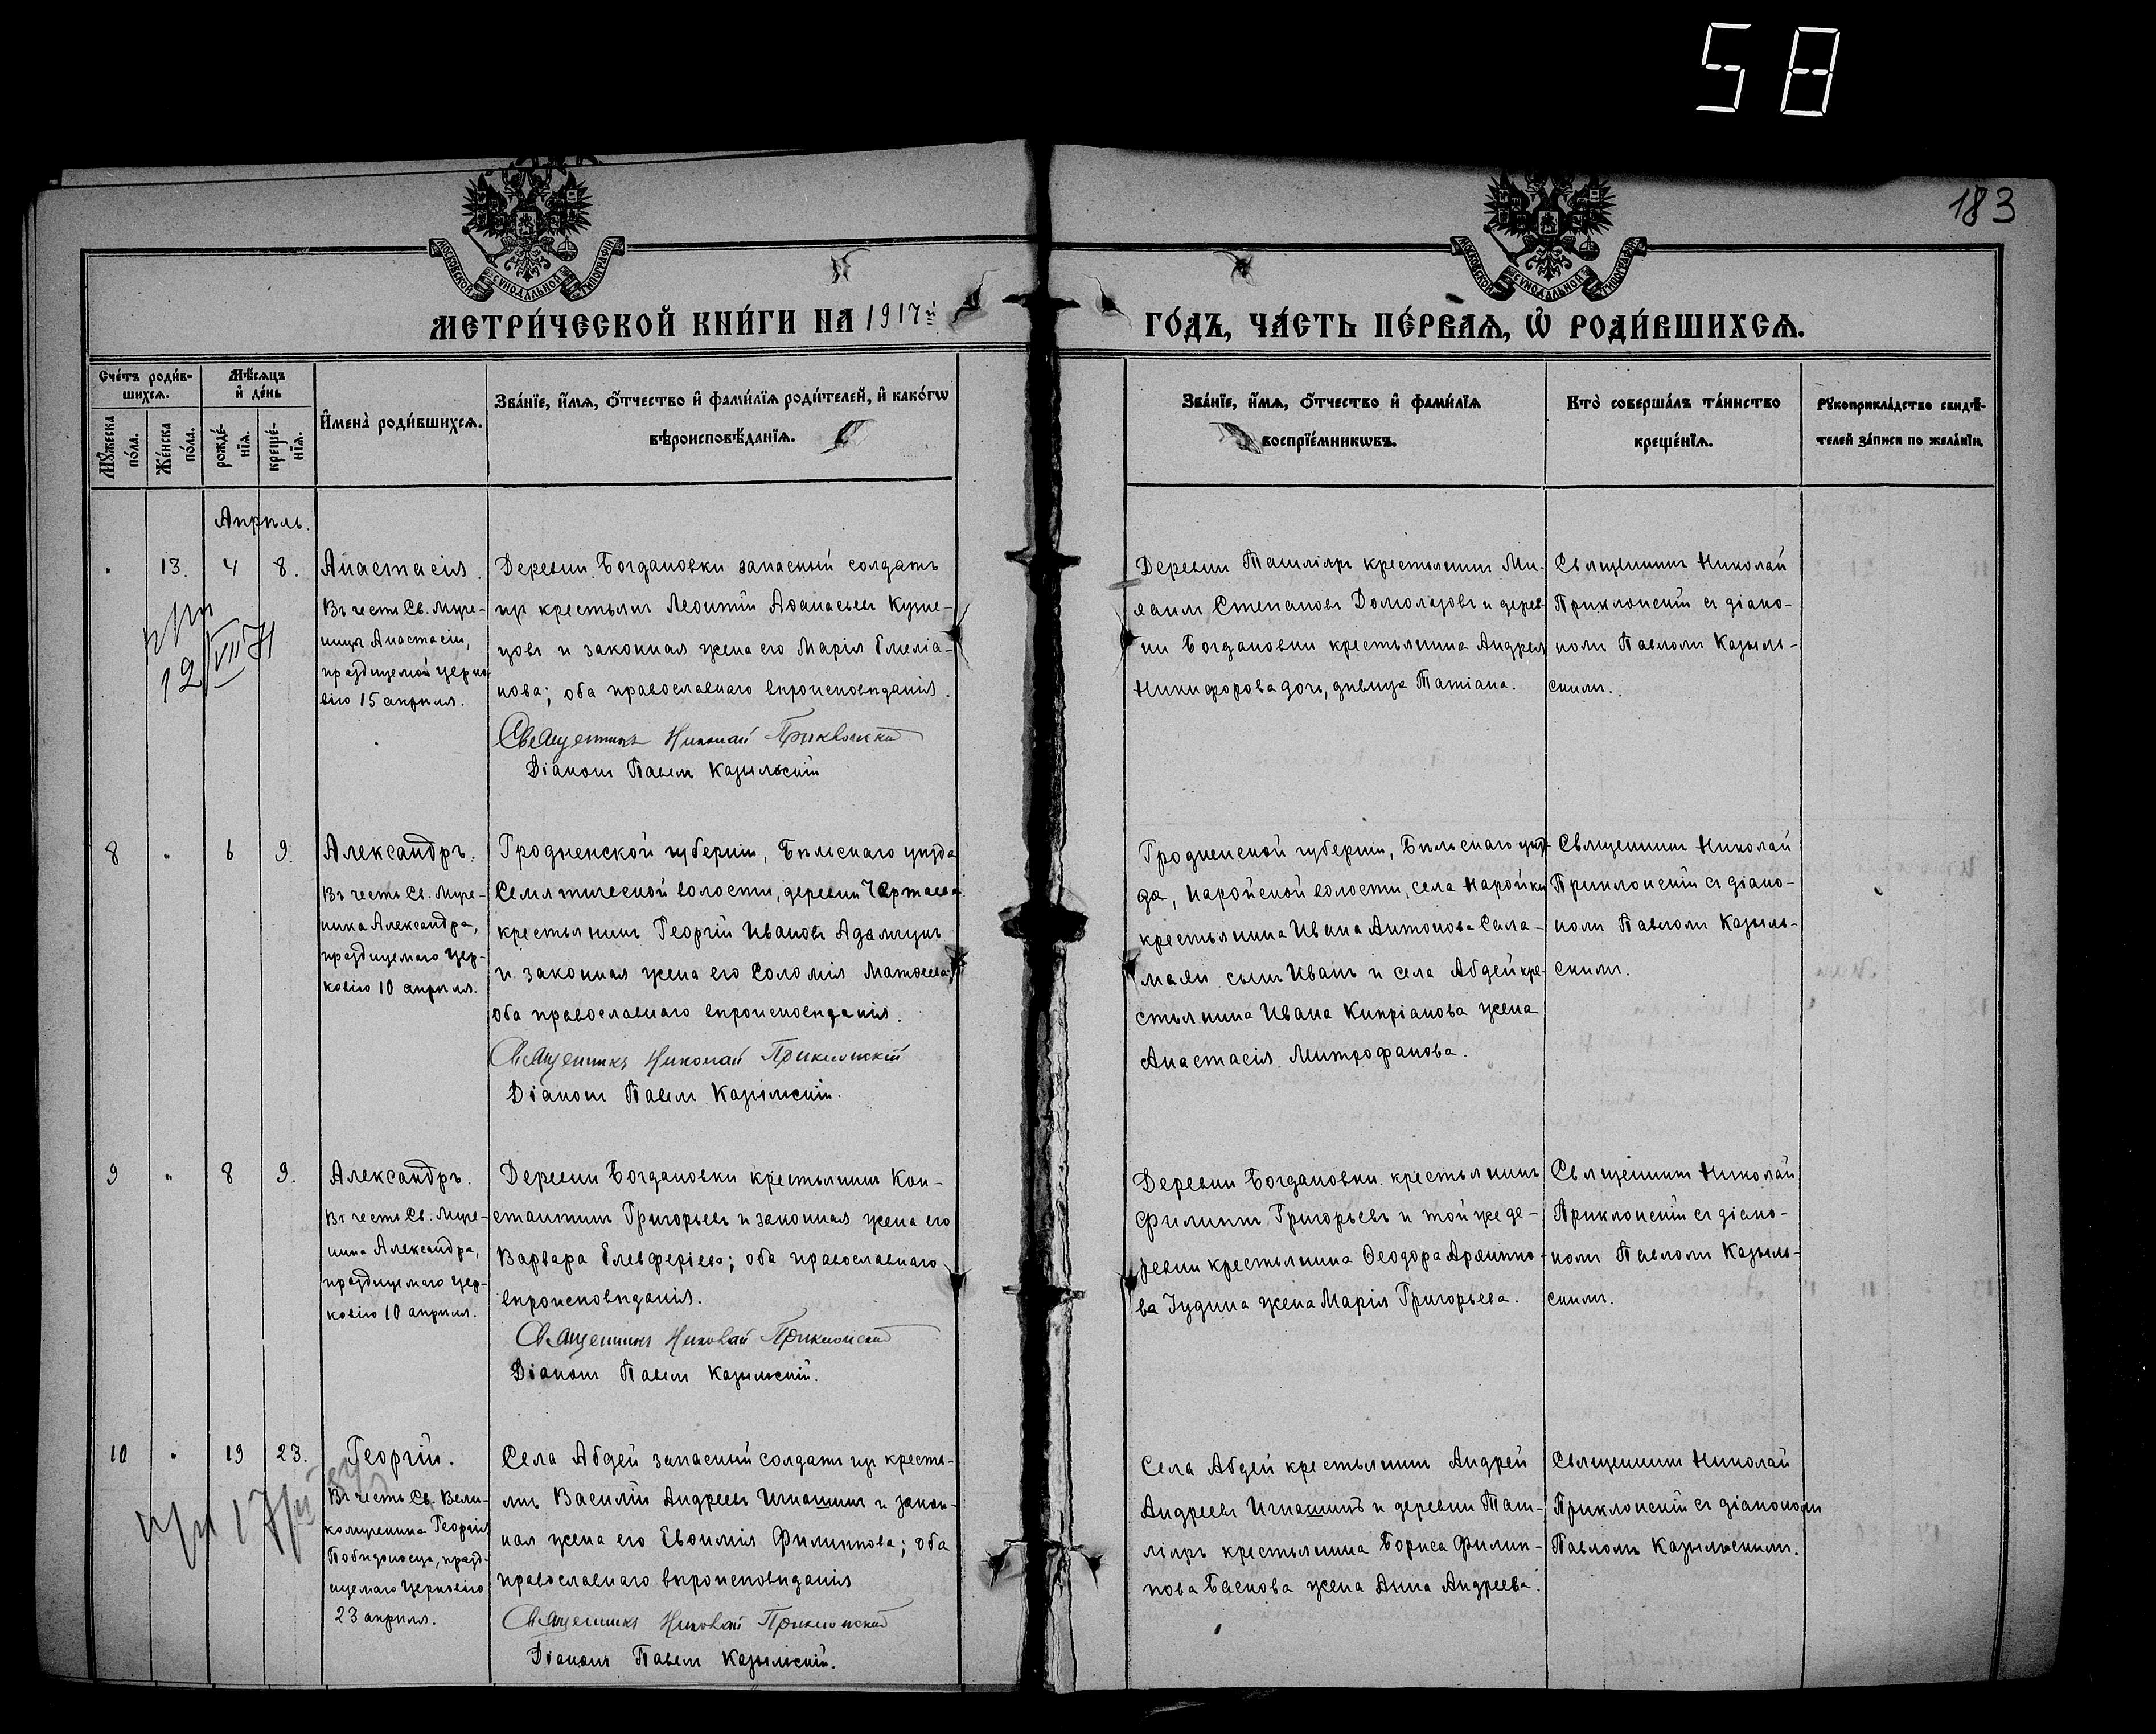 58
183
МОСКОВСКОЙ СѴНОДАЛЬНОЙ ТИПОГРАФІИ
МОСКОВСКОЙ СѴНОДАЛЬНОЙ ТИПОГРАФІИ
МЕТРИ́ЧЕСКОЙ КНИ́ГИ НА 1917й
ГО́ДЪ, ЧА́СТЬ ПЕ́РВАѦ, Ѡ҆ РОДИ́ВШИХСѦ.
Сче́тъ роди́в-
шихсѧ.
Мѣ́сѧцъ
и҆ де́нь
И҆мена̀ роди́вшихсѧ.
Зва́нїе, и҆́мѧ, ѻ҆́тчество и҆ фами́лїѧ роди́телей, и҆ како́гѡ
вѣроисповѣ́данїѧ.
Мꙋ́жеска по́ла.
Же́нска по́ла.
рожде́-нїѧ.
креще́-нїѧ.
Зва́нїе, и҆́мѧ, ѻ҆́тчество и҆ фами́лїѧ
воспрїе́мникѡвъ.
Кто̀ соверша́лъ та́инство
креще́нїѧ.
Рꙋкоприкла́дство свидѣ́-
телей за́писи по жела́нїю.
Апрѣль.
" 13. 4 8. Анастасія.
Въ честь Св. Муче-
ницы Анастасіи,
празднуемой Церко-
вію 15 апрѣля.
12/VII 71
Деревни Богдановки запасный солдатъ
изъ крестьянъ Леонтій Аѳанасьевъ Кузне-
цовъ и законная жена его Марія Емеліа-
нова; оба православнаго вѣроисповѣданія.
Священникъ Николай Приклонскій
Діаконъ Павелъ Казыльскій
Деревни Ташліяръ крестьянинъ Ми-
хаилъ Степановъ Домолазовъ и дерев-
ни Богдановки крестьянина Андрея
Никифорова дочь, дѣвица Татіана.
Священникъ Николай
Приклонскій съ діако-
номъ Павломъ Казыль-
скимъ.
8 " 6 9. Александръ.
Въ честь Св. Муче-
ника Александра,
празднуемаго Цер-
ковію 10 апрѣля.
Гродненской губерніи, Бѣльскаго уѣзда
Семятической волости, деревни Чартаева
крестьянинъ Георгій Ивановъ Адамчукъ
и законная жена его Соломія Матѳеева;
оба православнаго вѣроисповѣданія.
Священникъ Николай Приклонскій
Діаконъ Павелъ Казыльскій.
Гродненской губерніи, Бѣльскаго уѣз-
да, Наройской волости, села Наройки
крестьянина Ивана Антонова Сала-
махи сынъ Иванъ и села Абдей кре-
стьянина Ивана Кипріанова жена
Анастасія Митрофанова.
Священникъ Николай
Приклонскій съ діако-
номъ Павломъ Казыль-
скимъ.
9 " 8 9. Александръ.
Въ честь Св. Муче-
ника Александра,
празднуемаго Цер-
ковію 10 апрѣля.
Деревни Богдановки крестьянинъ Кон-
стантинъ Григорьевъ и законная жена его
Варвара Елевферіева; оба православнаго
вѣроисповѣданія.
Священникъ Николай Приклонскій
Діаконъ Павелъ Казыльскій.
Деревни Богдановки крестьянинъ
Филиппъ Григорьевъ и той же де-
ревни крестьянина Ѳеодора Архиппо-
ва Іудина жена Марія Григорьева.
Священникъ Николай
Приклонскій съ діако-
номъ Павломъ Казыль-
скимъ.
10 " 19 23. Георгій.
Въ честь Св. Вели-
комученика Георгія
Побѣдоносца, празд-
нуемаго Церковію
23 апрѣля.
Села Абдей запасный солдатъ изъ кресть-
янъ Василій Андреевъ Игнашинъ и закон-
ная жена его Евѳимія Филиппова; оба
православнаго вѣроисповѣданія
Священникъ Николай Приклонскій
Діаконъ Павелъ Казыльскій.
Села Абдей крестьянинъ Андрей
Андреевъ Игнашинъ и деревни Таш-
ліяръ крестьянина Бориса Филип-
пова Баскова жена Анна Андреева.
Священникъ Николай
Приклонскій съ діакономъ
Павломъ Казыльскимъ.